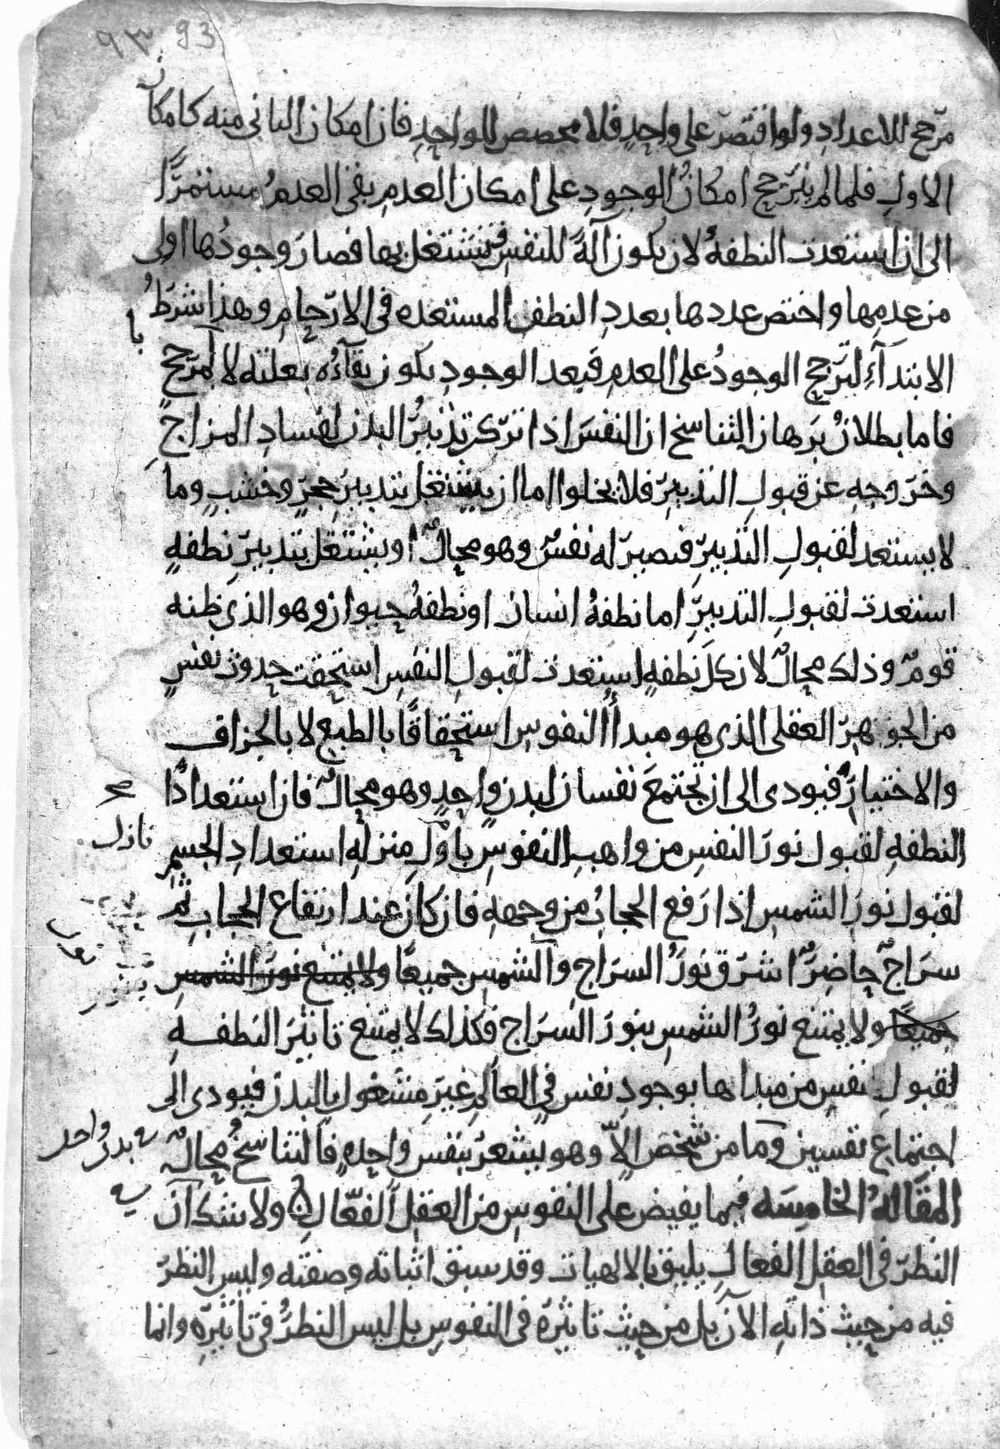 ٩٣ 93
مرجح للاعداد ولو اقتصر على واحد فلا مخصص للواحد فان امكان الثانى منه كامكان
الاول فلما لم يترجح امكان الوجود على امكان العدم بقى العدم مستمرًا
الى ان استعدت النطفة لان يكون آلة للنفس فتشتغل بها فصار وجودها اولى
من عدمها واختص عددها بعدد النطف المستعده فى الارحام وهذا شرط
الابتدآء لترجح الوجود على العدم فبعد الوجود يكون بقآءه بعلته لا لمرجح
فاما بطلان برهان التناسخ ان النفس اذا تركت تدبير البدن لفساد المزاج
وخروجه عن قبول التدبير فلا يخلوا اما ان يشتغل بتدبير حجر وخشب وما
لا يستعد لقبول التدبير فتصير له نفس وهو محال او يشتغل بتدبير نطفه
استعدت لقبول التدبير اما نطفة انسان او نطفة حيوان وهو الذى ظنه
قوم وذلك محال لان كل نطفه استعدت لقبول النفس استحقت حدوث نفس
من الجوهر العقلى الذى هو مبدأ النفوس استحقاقًا بالطبع لا بالجزاف
والاختيار فيودى الى ان تجتمع نفسان لبدن واحد وهو محال فان استعداد
النطفه لقبول نور النفس من واهب النفوس باول منزله استعداد الجسم
لقبول نور الشمس اذا رفع الحجاب من وجهه فان كان عند ارتفاع الحجاب ثم
سراج حاضر اشرق نور السراج والشمس جميعًا ولا يمتنع نور الشمس
جميعًا ولا يمتنع نور الشمس بنور السراج فكذلك لا يمتنع تاثير النطفه
لقبول نفس من مبداها بوجود نفس فى العالم غير مشغول بالبدن فيودى الى
اجتماع نفسين وما من شخص الا وهو يشعر بنفس واحده فالتناسخ محال
بدن واحد
المقالة الخامسه فيما يفيض على النفوس من العقل الفعال ولا شك ان
النظر فى العقل الفعال يليق بالالهيات وقد سبق اثباته وصفته وليس النظر
فيه من حيث ذاته الآن بل من حيث تاثيره فى النفوس بل ليس النظر فى تاثيره وانما